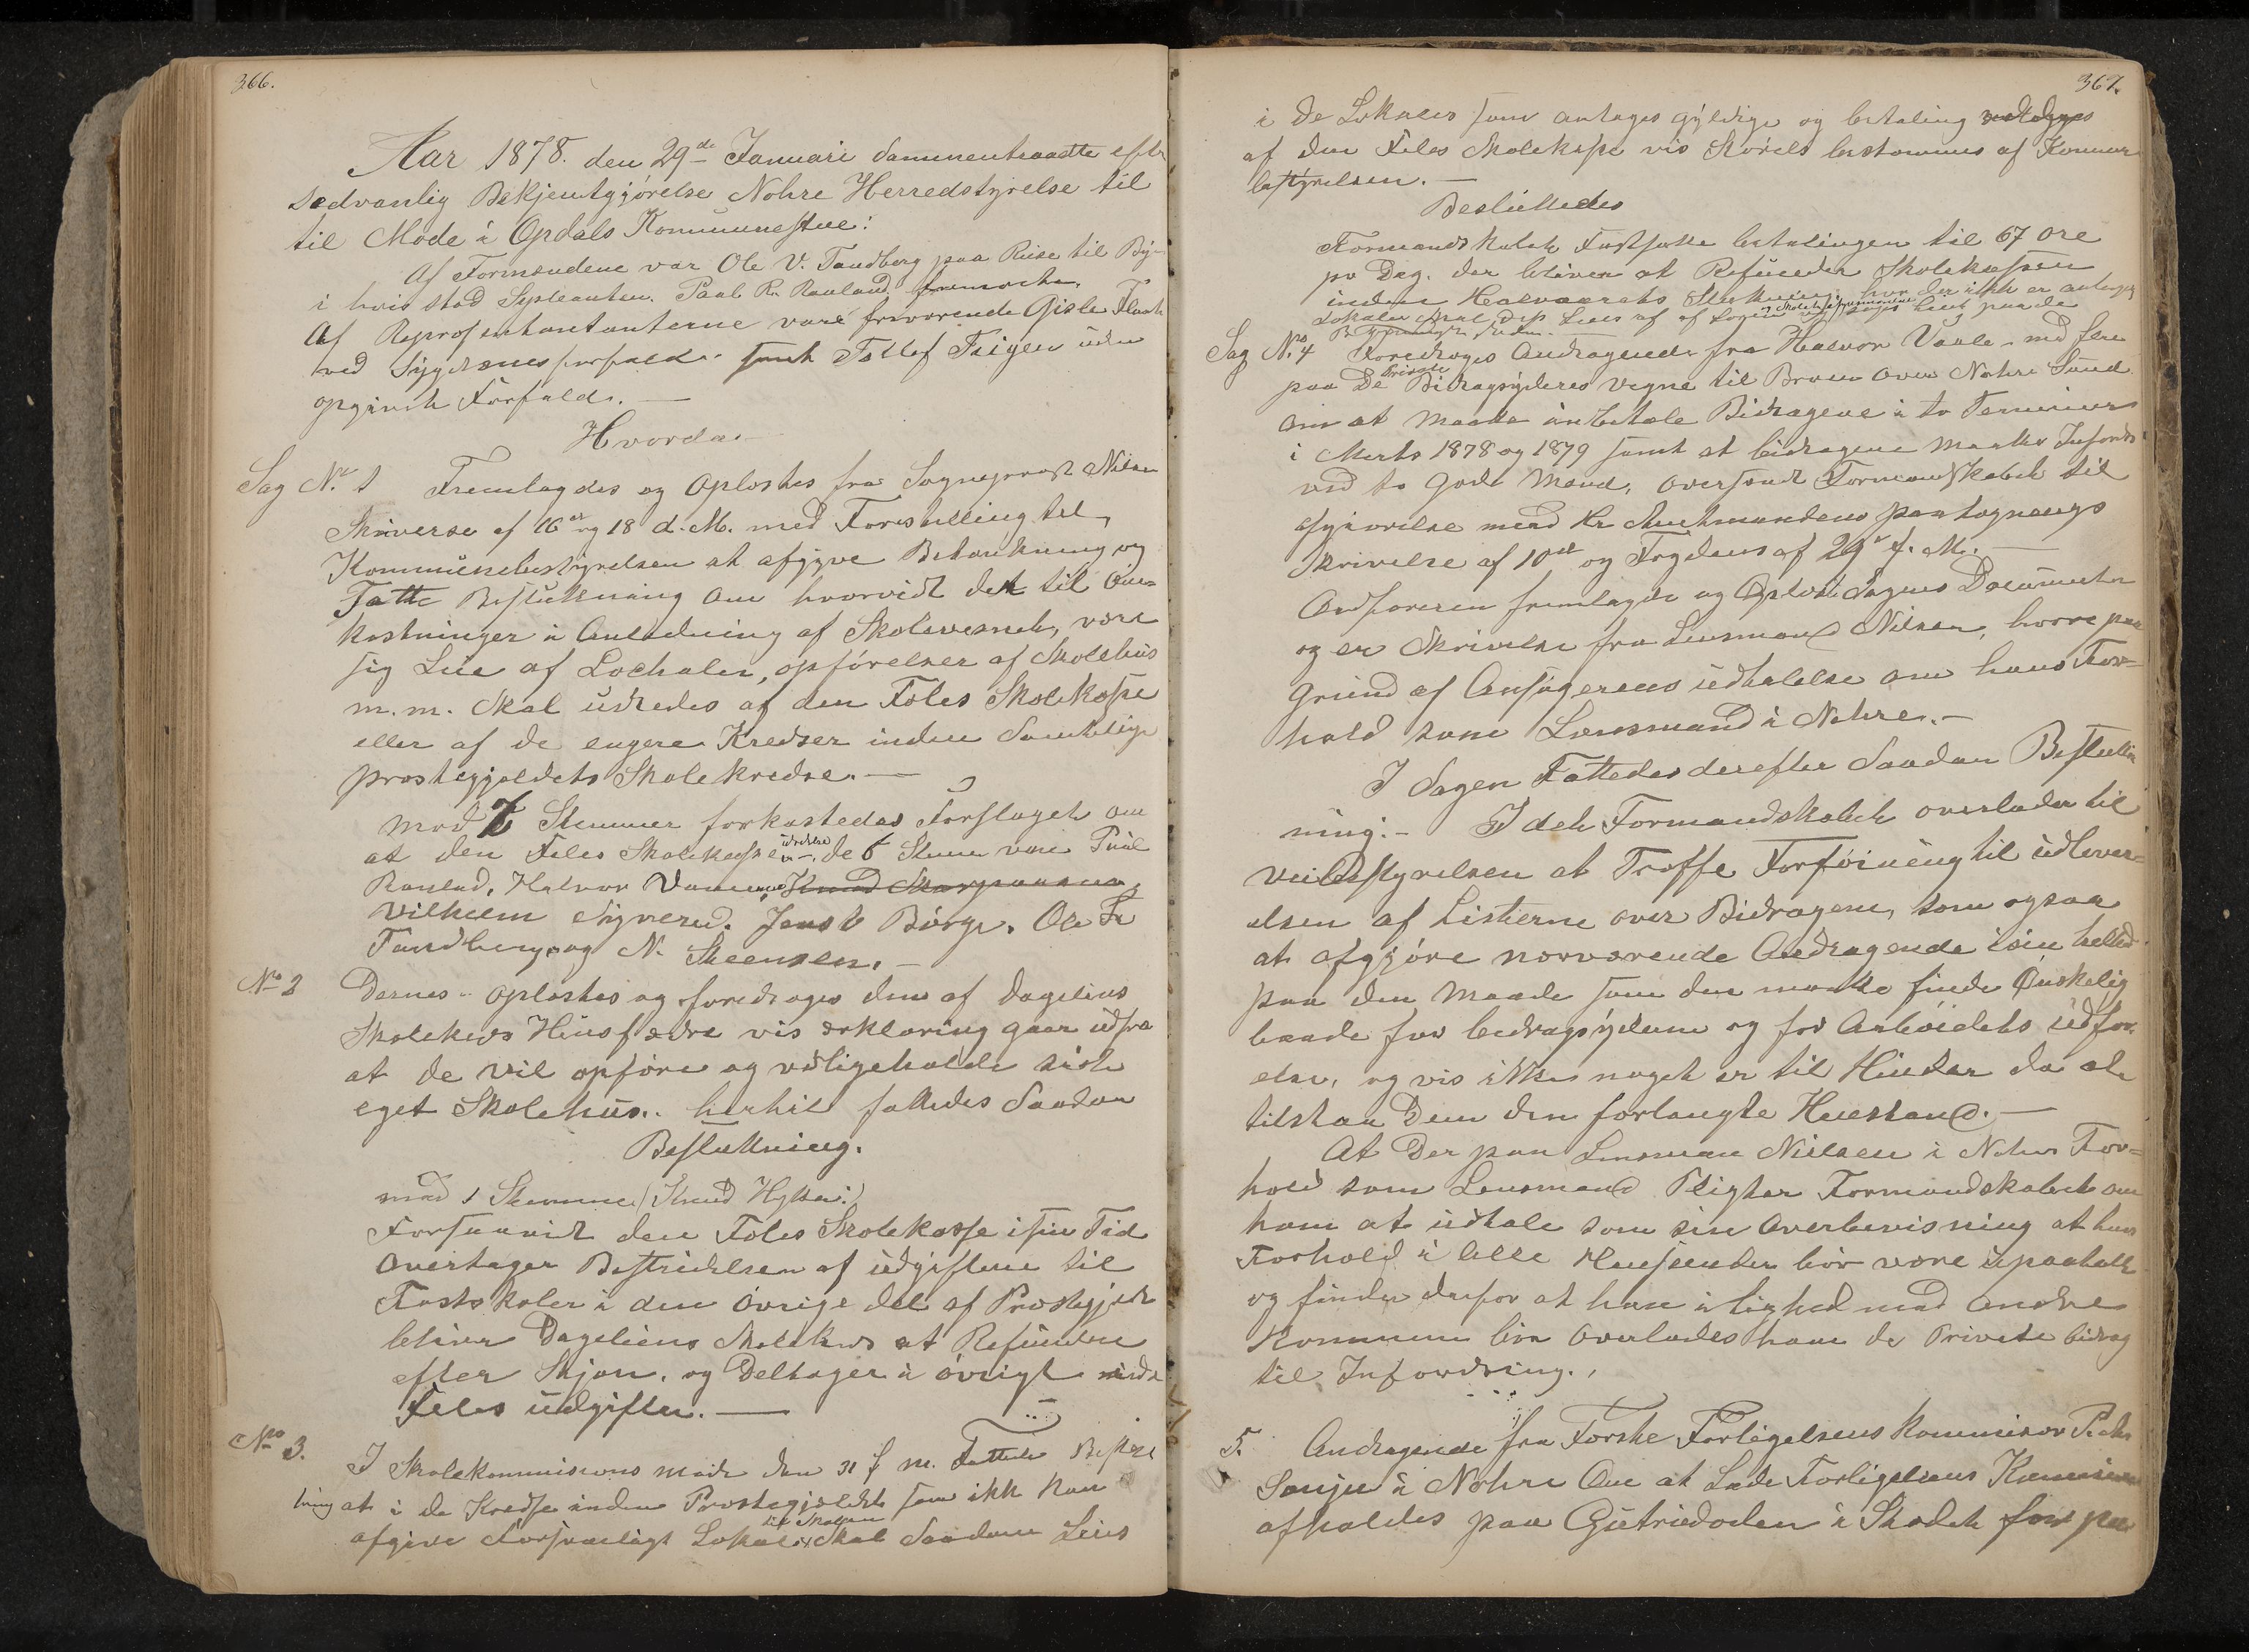 366.
Aar 1878. den 29de Januari Sammentraadte efter
sædvanlig Bekjentgjörelse Nohre Herredstyrelse til
til Möde i Opdals Kommunestue:
Af Formændene var Ole V. Tandberg paa Reise til
i hvis sted Supleanten. Paal Rauland fremmødte.
Af Represententanterne vare fraværende Gisle
ved Sygdomsforfald. samt Tollef Frigen uden
opgivet Forfald. —
Hvorda.
Sag No. 1 Fremlagdes og Oplæstes fra Sogneprest Nilsen
Skrivelse af 16de og 18 d. M. med Forestilling til
Kommunebestyrelsen at afgive Betænkning og
Fatte Beslutning Om hvorvidt det til Om-
kostninger i Anledning af Skolevæsenet, være
sig Leie af Lochaler, opförelser af Skolehus
m. m. Skal udredes af den Fæles Skolekasse
eller af de engere Kredser inden Samtlige
prestegjeldets Skolekredse. —
Mod 6 Stemmer forkastedes Forslaget om
at den Fæles Skolekasse udredes de 6 Stem vare Paul
Rauland, Halvor
Vilhelm Jens Börge. Ole
Tandberg og N. Steensen. —
No 2 Dernest oplæstes og foredroges den af Dagelius
Skolekreds Husfædre vis erklæring gaar ud fra
at de vil opföre og vedligeholde sidt
eget Skolehus. hertil fattedes Saadan
Beslutning.
mod 1 Stemme (Knud
Forsaavidt den Fæles Skolekasse i sin Tid
Overtager Bestridelsen af udgiftene til
Fastskoler i den övrige del af Prestegjeld
bliver Dageliens Skolekreds at Refundere
efter Skjön. og Deltager i övrigt
Fæles udgifter. —
No 3. I Skolekommisions möde den 31 f. m. Fattedes Beslut
ning at i de Kredse inden Prestegjeldet som ikke kan
til Skolen
afgive Forsvarligt Lokale Skal Saadan Leies
367.
i de Lokaler som antages gyldige og betaling
af den Fæles Skolekasse vis Störels bestemmes af Kommune
bestyrelsen. —
Besluttedes
Formandskabet Fastsætte betalingen til 67 Öre
pr Dag. der bliver at Refundere Skolekassen
inden Halvaarets
Sag No. 4 Foredroges Andragende fra Halvor Vaale med flere
Private
paa De Bidragsyderes vegne til Broen Over Nohre Sund
Om at Maatte indbetale Bidragene i to Terminer
i Marts 1878 og 1879 samt at bidragene Maatte Infordres
ved to Gode Mænd, oversendt Formandskabet til
afgjörelse med Hr Amtmandens paategnings
Skrivelse af 10de og Fogdens af 29de f. M. —
Ordföreren fremlagde og Oplæste Sagens Documenter
og en Skrivelse fra Lensmand Nilsen, hvore paa
Grund af Ansögerens udtalelse om hans For-
hold som Lensmand i Nohre. —
I Sagen Fattedes derefter Saadan Beslut
ning:— I det Formandskabet overlader til
veibestyrelsen at Træffe Forföining til udlever-
elsen af Listerne over Bidragene, som ogsaa
at afgjöre nærværende Andragende i sin helhed
paa den Maade som den maatte finde Önskelig
baade for bidragsyderne og for Arbeidets udför-
else, og vis ikke noget er til Hinder da at
tilstaa Dem den forlangte Henstand. —
At Der paa Lensman Nielsen i Nohre For-
hold som Lensmand Pligter Formandskabet om
ham at udtale som sin Overbevisning at hans
Forhold i alle Henseender bör være upaatalt
og finder derfor at han i lighed med andre
Kommuner bör Overlades ham de Private bidrag
til Infordring.
5. Andragende fra Forligelsens kommisær
i Nohre Om at Lade Forligelsens
afholdes paa i Stedet for paa